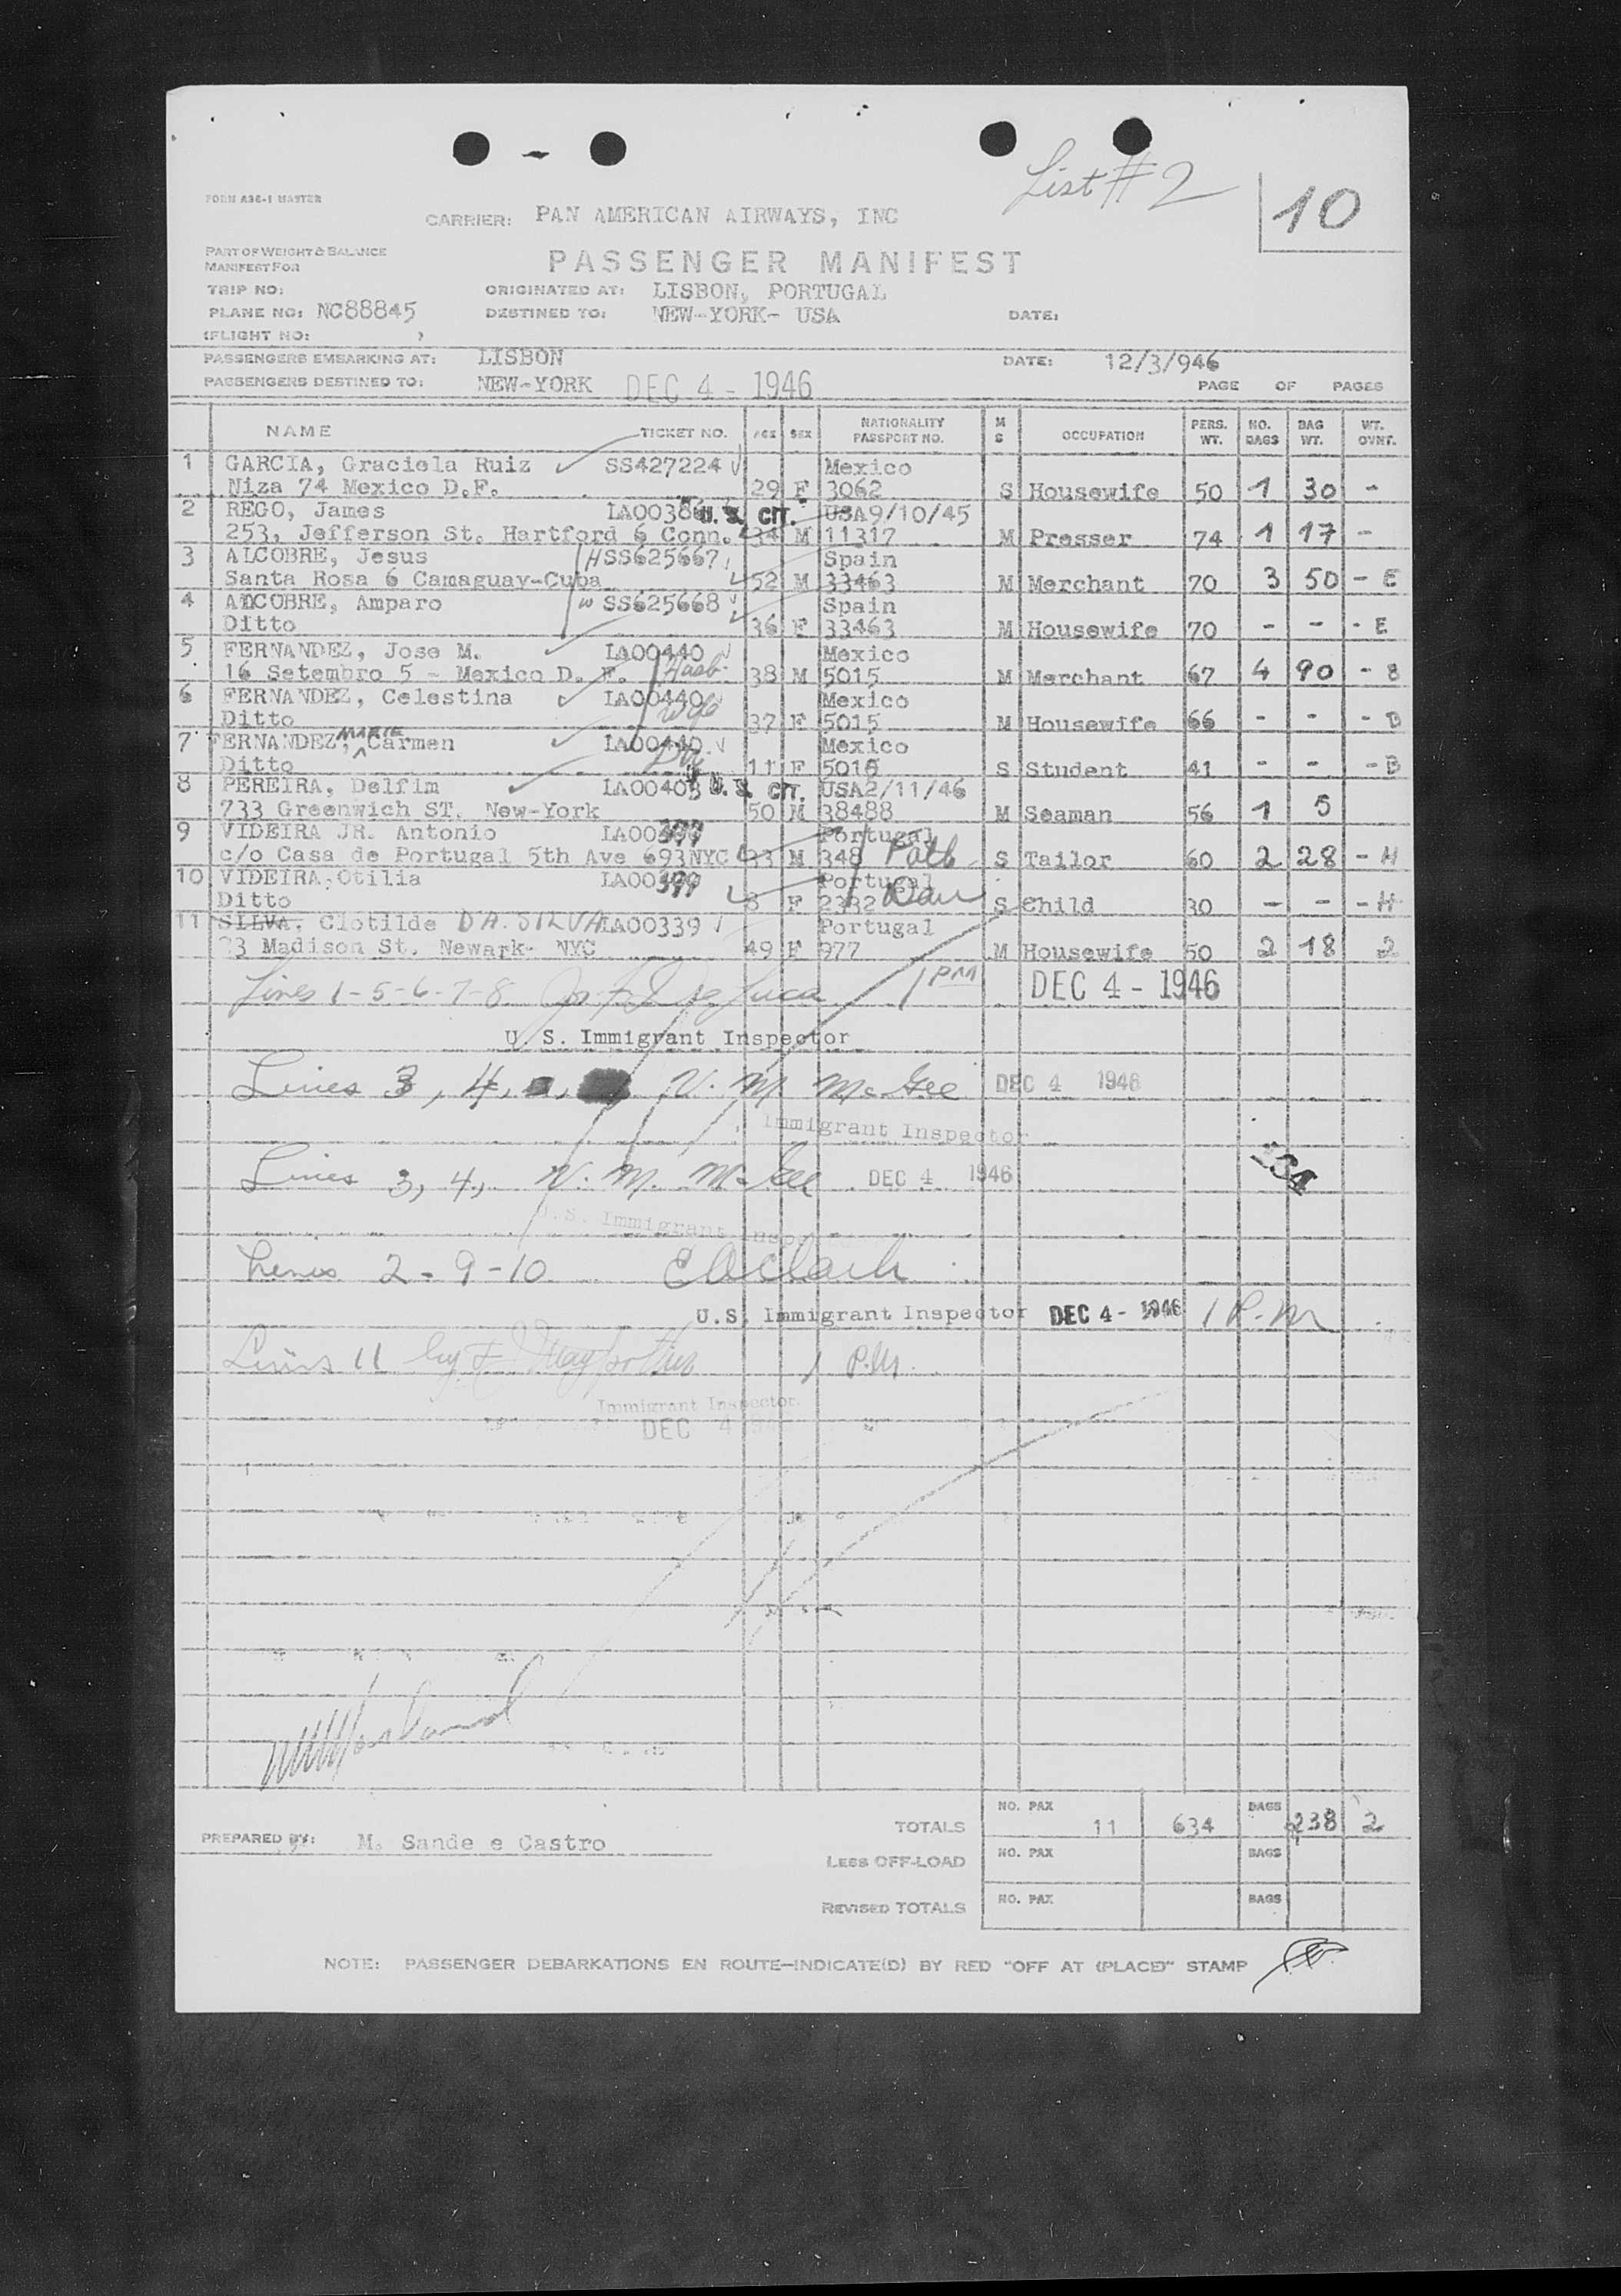 List # 2
10
FORM A36-1 MASTER
CARRIER: PAN AMERICAN AIRWAYS, INC
PART OF WEIGHT & BALANCE
MANIFEST FOR
PASSENGER MANIFEST
TRIP NO:
ORIGINATED AT: LISBON, PORTUGAL
PLANE NO: NC88845
DESTINED TO: NEW-YORK- USA
DATE:
(FLIGHT NO: )
PASSENGERS EMBARKING AT: LISBON DATE: 12/3/946
PASSENGERS DESTINED TO: NEW-YORK DEC 4 - 1946 PAGE OF PAGES
NAME TICKET NO. AGE SEX NATIONALITY PASSPORT NO. M S OCCUPATION PERS. WT. NO. BAGS BAG WT. WT. OVNT.
1 GARCIA, Graciela Ruiz SS427224 Mexico
Niza 74 Mexico D.F. 29 F 3062 S Housewife 50 1 30 -
2 REGO, James U.S. CIT. USA9/10/45
253, Jefferson St. Hartford 6 Conn. 34 M 11317 M Presser 74 1 17 -
3 ALCOBRE, Jesus H SS625667 Spain
Santa Rosa 6 Camaguay-Cuba 52 M 33463 M Merchant 70 3 50 - E
4 ALCOBRE, Amparo W SS625668 Spain
Ditto 36 F 33463 M Housewife 70 - - - E
5 FERNANDEZ, Jose M. LA00440 Mexico
16 Setembro 5 - Mexico D. F. Husb. 38 M 5015 M Merchant 67 4 90 - B
6 FERNANDEZ, Celestina LA00440 Mexico
Ditto Wife 37 F 5015 M Housewife 66 - - - B
7 FERNANDEZ, MARIE Carmen LA00440 Mexico
Ditto 11 F 5015 S Student 41 - - - B
8 PEREIRA, Delfim LA00403 U.S. CIT. USA2/11/46
733 Greenwich ST. New-York 50 M 38488 M Seaman 56 1 5
9 VIDEIRA JR. Antonio LA00399 Portugal
c/o Casa de Portugal 5th Ave 693NYC 33 M 348 Fath S Tailor 60 2 28 - H
10 VIDEIRA, Otilia LA00399 Portugal
Ditto 8 F 2382 Dau S Child 30 - - - H
11 SILVA, Clotilde DA SILVA LA00339 Portugal
23 Madison St. Newark- NYC 49 F 977 M Housewife 50 2 18 2
Lines 1-5-6-7-8 1 PM DEC 4 - 1946
U. S. Immigrant Inspector
Lines 3, 4, V. M. McGee DEC 4 1946
Immigrant Inspector
Lines 3, 4, V. M. McGee DEC 4 1946
U.S. Immigrant Inspector
Lines 2-9-10 E A Clark
U.S. Immigrant Inspector DEC 4 - 1946 1 P.M
Lines 11 by 1 P.M.
Immigrant Inspector.
DEC 4
TOTALS NO. PAX 11 634 BAGS 238 2
PREPARED BY: M. Sande e Castro
LESS OFF-LOAD NO. PAX BAGS
REVISED TOTALS NO. PAX BAGS
NOTE: PASSENGER DEBARKATIONS EN ROUTE—INDICATE(D) BY RED "OFF AT (PLACE)" STAMP